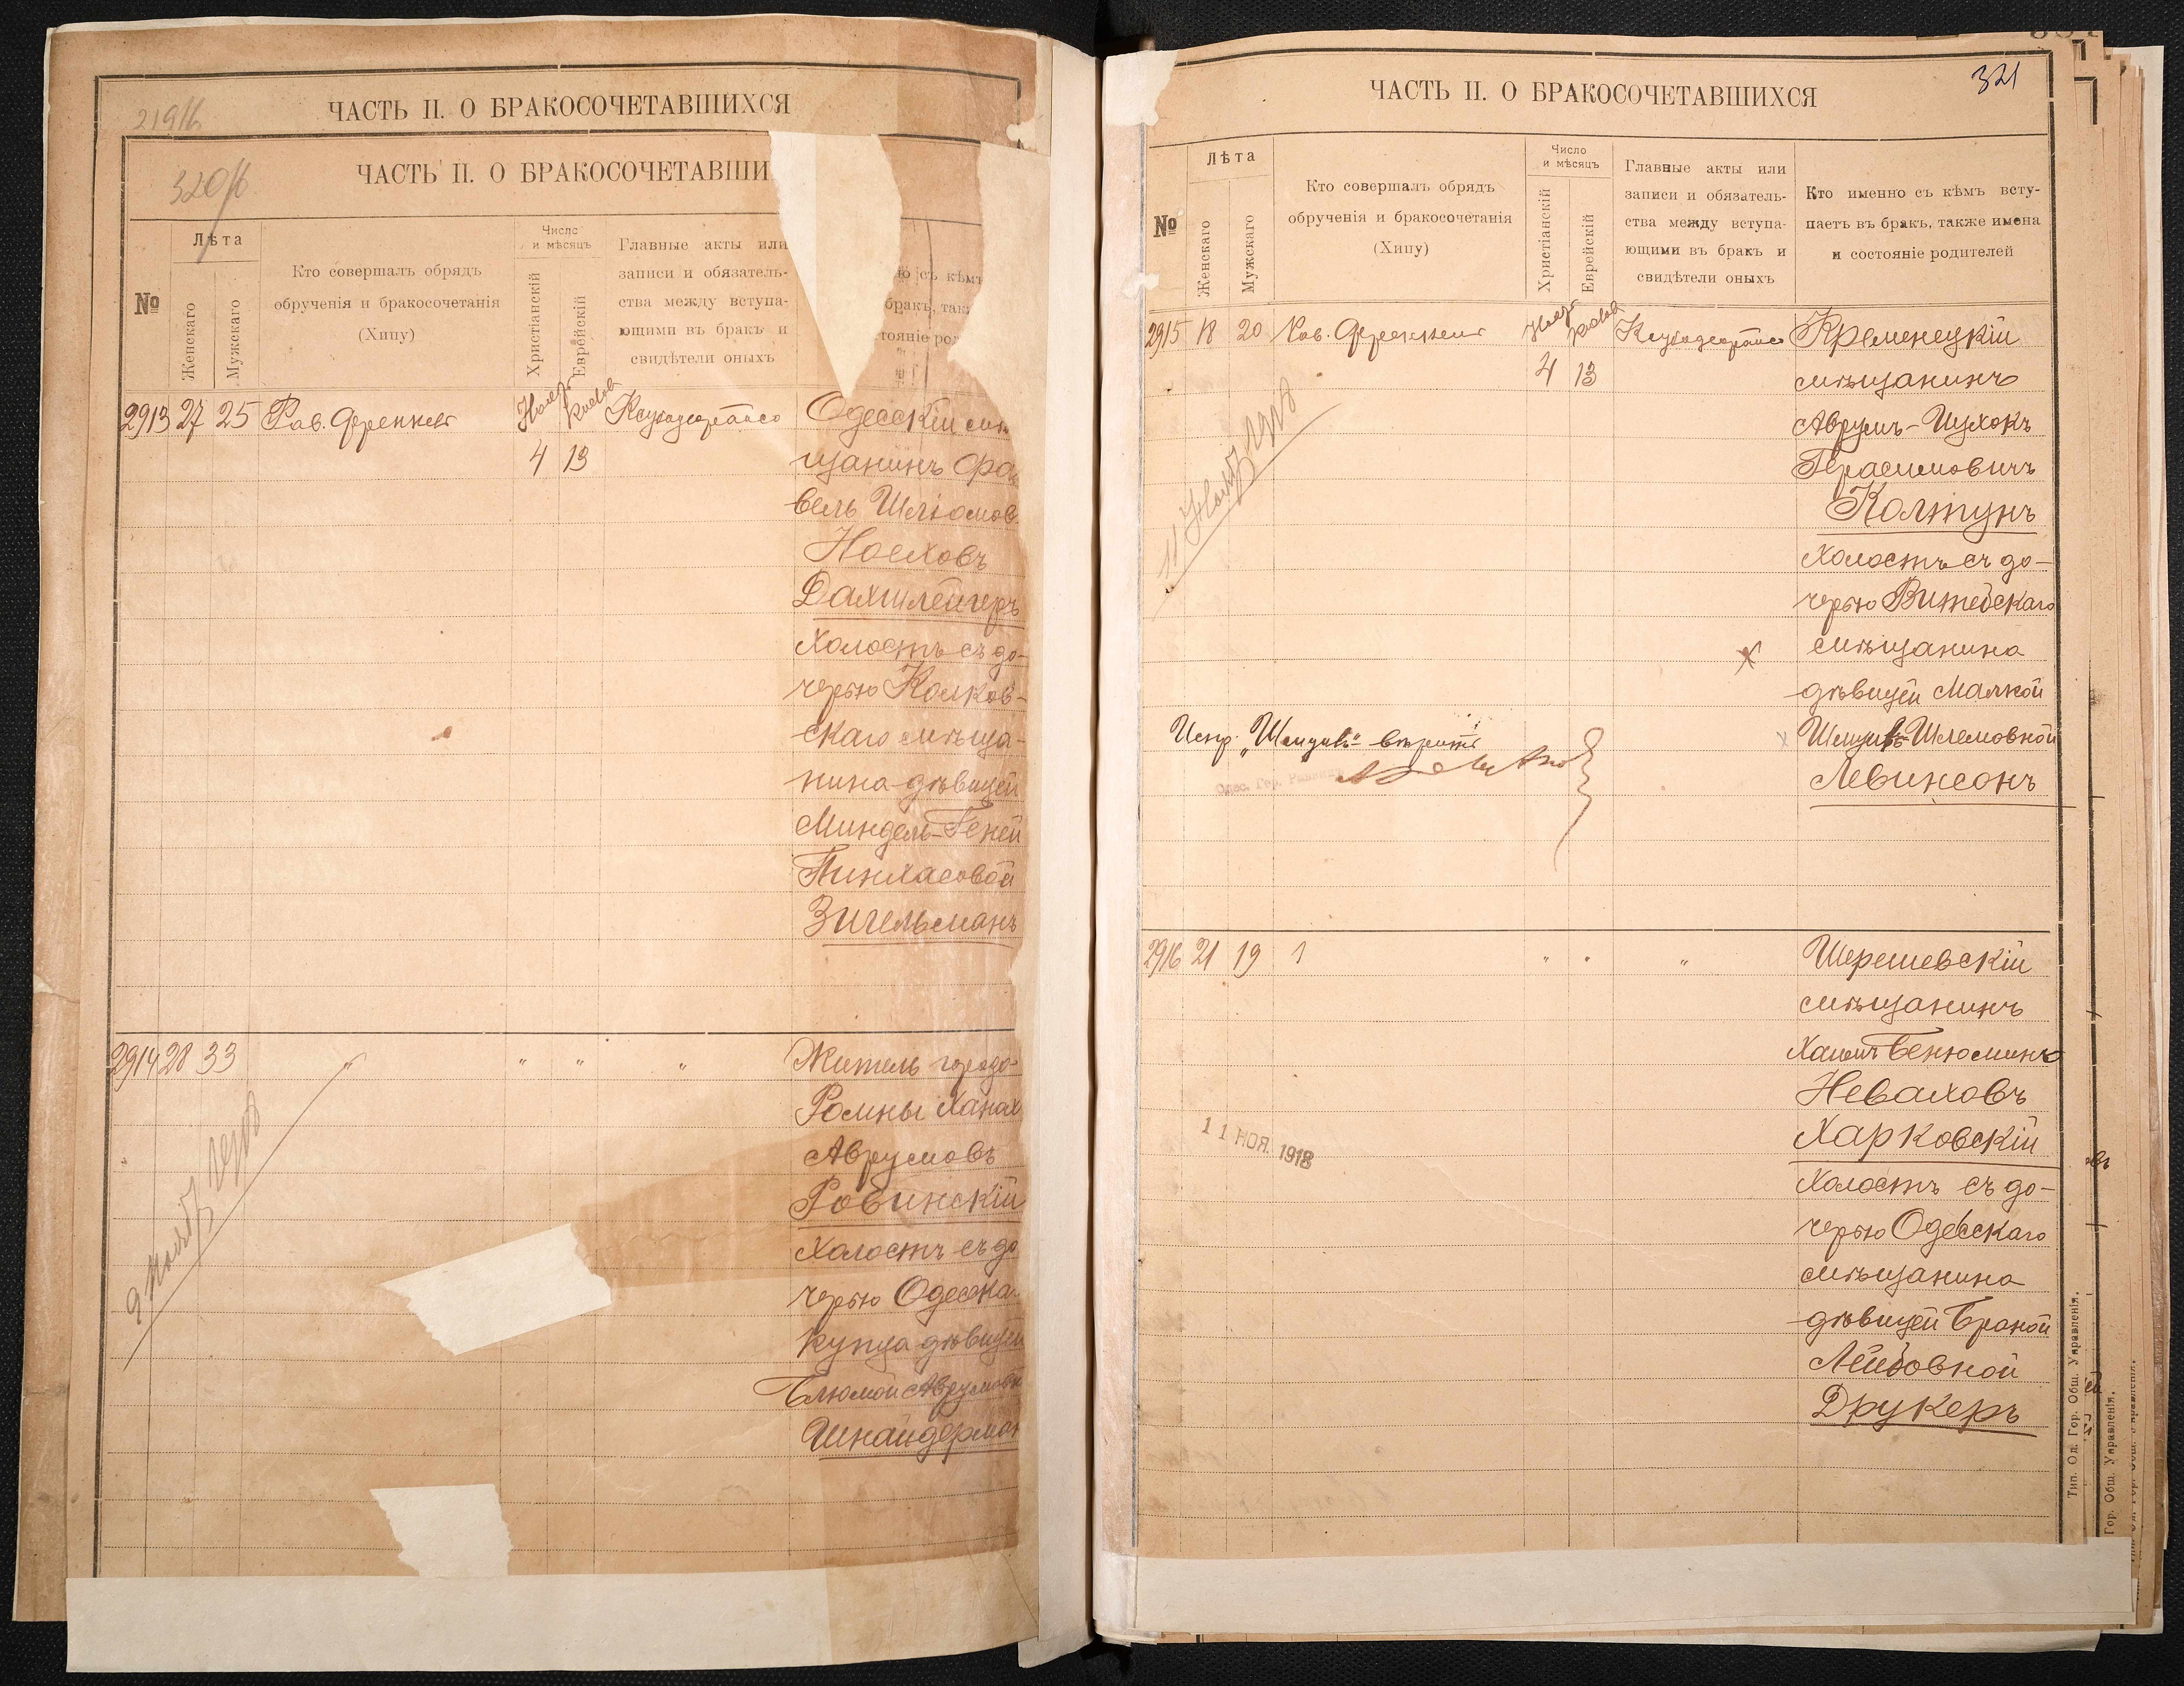 ЧАСТЬ II. О БРАКОСОЧЕТАВШИХСЯ
ЧАСТЬ II. О БРАКОСОЧЕТАВШИ
320/б
№
Лѣта
Женскаго
Мужскаго
Кто совершалъ обрядъ
обрученія и бракосочетанія
(Хипу)
Число
и мѣсяцъ
Христіанскій
Еврейскій
Главные акты или
записи и обязатель-
ства между вступа-
ющими въ бракъ и
свидѣтели оныхъ
съ кѣмъ
бракъ, так
стояніе ро
2913 27 25 Рав. Френкель
4 13
Одесскій мѣ
щанинъ Фра
вель Шлюмов
Носховъ
Вахшлейгеръ
Холостъ съ до-
черью Колков-
скаго мѣща-
нина дѣвицей
Миндель-Геней
Пинхасовой
Зигельманъ
2914 28 33 " " " "
Житель города
Ромны Ханах
Аврумовъ
Ровинскій
Холостъ съ до
черью Одесска
купца дѣвицей
Блюмой Аврумовн
Шнайдерман
ЧАСТЬ II. О БРАКОСОЧЕТАВШИХСЯ
321
№
Лѣта
Женскаго
Мужскаго
Кто совершалъ обрядъ
обрученія и бракосочетанія
(Хипу)
Число
и мѣсяцъ
Христіанскій
Еврейскій
Главные акты или
записи и обязатель-
ства между вступа-
ющими въ бракъ и
свидѣтели оныхъ
Кто именно съ кѣмъ всту-
паетъ въ бракъ, также имена
и состояніе родителей
2915 18 20 Рав. Френкель
4 13
Кременецкій
мѣщанинъ
Аврумъ-Ицхокъ
Герасимовичъ
Колтунъ
Холостъ съ до-
черью Витебскаго
мѣщанина
дѣвицей Малкой
Шлемовной
Левинсонъ
Испр. вѣрить
Одес. Гор. Раввинъ
2916 21 19 " " "
Шерешевскій
мѣщанинъ
Хаимъ Бенюминъ
Неваховъ
Харковскій
Холостъ съ до-
черью Одесскаго
мѣщанина
дѣвицей Браной
Лейбовной
Друкеръ
11 НОЯ. 1918
Тип. Од. Гор. Общ. Управленія.
Гор. Общ. Управленія.